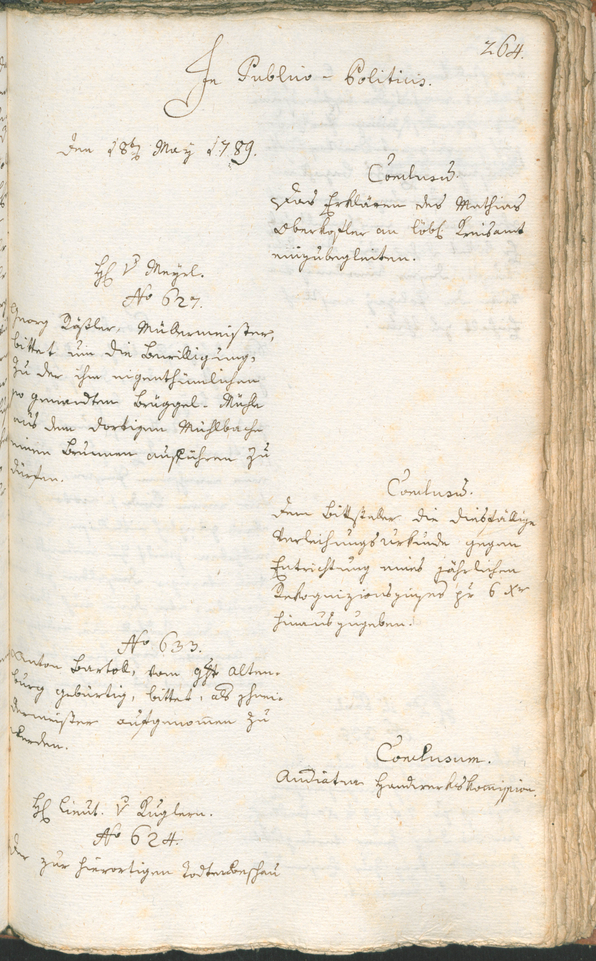 264.
In Publico-Politicis.
Den 18t May 1789.
Conclusum.
Das Erklären des Mathias
Oberkofler an löbl. Kreisamt
einzubegleiten.
H. v Mayrl.
No 627.
Georg Rößler, Müllermeister,
bittet um die Bewilligung,
zu der ihm eigenthümlichen
so genandten Brüggel-Mühle
aus dem dortigen Mühlbache
einen Brunnen ausführen zu
dürfen.
Conclusum.
Dem Bittsteller die diesfällige
Verleihungsurkunde gegen
Entrichtung eines jährlichen
Rekognizionszinses pr 6 xr
hinauszugeben.
No 633.
Anton Bartol, vom Alten-
burg gebürtig, bittet, als Schnei-
dermeister aufgenommen zu
werden.
Conclusum.
Audiatur Handwerkskommission.
H. Lieut. v Kuglern.
No 624.
Der zur hierortigen Todtenbeschau